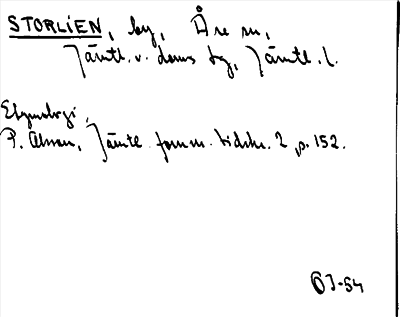 STORLIEN, by, Åre sn,
Jämtl. v. doms sg, Jämtl. l.
Etymologi,
P. Olsson, Jämtl. fornm. tidskr. 2, p. 152.
OJ-54